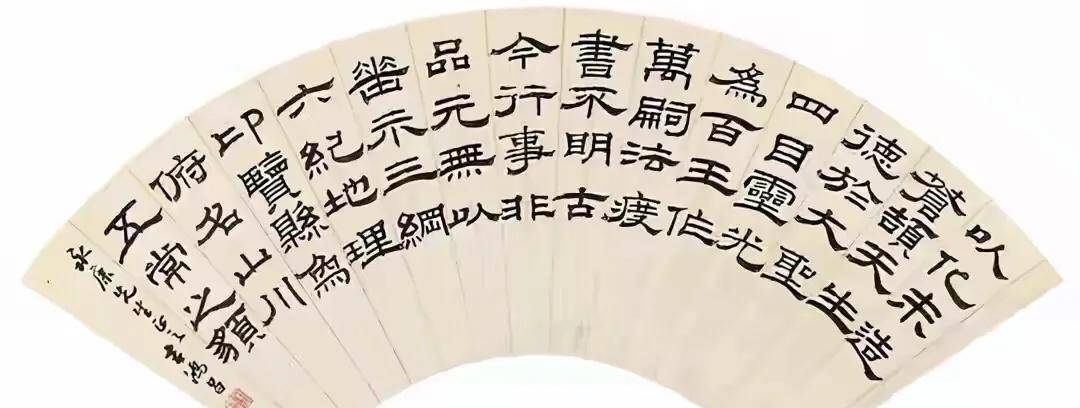 以化未造
蒼頡天生
德於大聖
四目靈光
為百王作
萬嗣法度
書不明古
今行事非
品元無以
垂示三綱
六紀地理
卬覽縣象
俯名山川
五常之䫉
康先生正